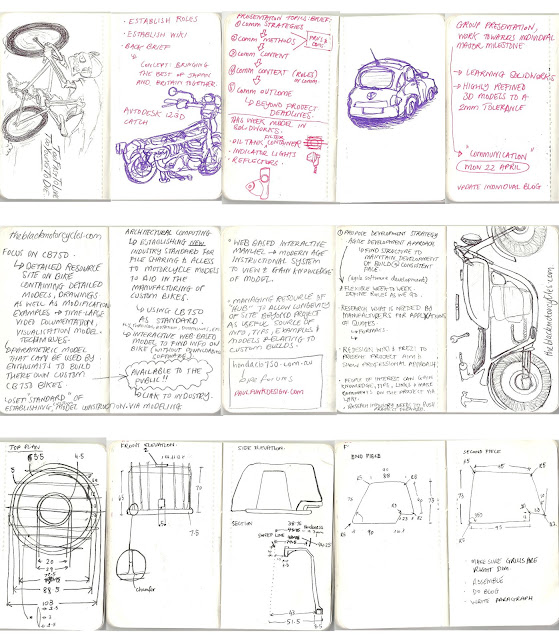 · ESTABLISH ROLES
· ESTABLISH WIKI
· BACK BRIEF
↳ CONCEPT: BRINGING
THE BEST OF JAPAN
AND BRITAIN TOGETHER.
AUTODESK 123D
CATCH
PRESENTATION TOPICS: BRIEF:
① COMM STRATEGIES
② COMM METHODS
③ COMM CONTENT
④ COMM CONTEXT (ROLES)
⑤ COMM OUTCOME
↳ BEYOND PROJECT
DEADLINES.
THIS WEEK MODEL IN
SOLIDWORKS.
FILTER
· OIL TANK CONTAINER
· INDICATOR LIGHTS
· REFLECTORS.
GROUP PRESENTATION,
WORK TOWARDS INDIVIDUAL
MAJOR MILESTONE
→ LEARNING SOLIDWORKS
→ HIGHLY REFINED
3D MODELS TO A
2mm TOLERANCE
"COMMUNICATION"
MON 22 APRIL
UPDATE INDIVIDUAL BLOG
theblackmotorcycles.com
FOCUS ON CB750.
↳ DETAILED RESOURCE
SITE ON BIKE
CONTAINING DETAILED
MODELS, DRAWINGS
AS WELL AS MODIFICATION
EXAMPLES → TIME-LAPSE
VIDEO DOCUMENTATION,
VISUALISATION MODEL
TECHNIQUES.
PARAMETRIC MODEL
THAT CAN BE USED BY
ENTHUSIASTS TO BUILD
THERE OWN CUSTOM
CB750 BIKES.
↳ SET "STANDARD" OF
ESTABLISHING MODEL CONSTRUCTION VIA MODELLING
ARCHITECTURAL COMPUTING
↳ ESTABLISHING NEW
INDUSTRY STANDARD FOR
FILE SHARING & ACCESS
TO MOTORCYCLE MODELS
TO AID IN THE
MANUFACTURING OF
CUSTOM BIKES.
↳ USING CB750
AS STANDARD.
INTERACTIVE WEB BASED
MODEL TO FIND INFO ON
BIKE (WITHOUT DOWNLOADING
SOFTWARE)
AVAILABLE TO THE
PUBLIC!!
↳ LINK TO INDUSTRY.
· WEB BASED INTERACTIVE
MANUEL → MODERN AGE
INSTRUCTIONAL SYSTEM
TO VIEW & GAIN KNOWLEDGE
OF MODEL.
· MANAGING RESOURCE OF
"HUB" TO ALLOW LONGEVITY
OF SITE BEYOND PROJECT
AS USEFUL SOURCE OF
INFO, TIPS, EXAMPLES &
MODELS RELATING TO
CUSTOM BUILDS.
hondacb750.com.au
PAULFUNKDESIGN.com
① PROPOSE DEVELOPMENT STRATEGY
· AGILE DEVELOPMENT APPROACH
↳ FIND STRUCTURE TO
MAINTAIN DEVELOPMENT
OF BUILD & CONSISTENT
PACE
(agile software development)
· FLEXIBLE WEEK TO WEEK
DEFINE ROLES AS WE GO.
· RESEARCH WHAT IS NEEDED BY
MANUFACTURERS FOR APPLICATIONS
OF QUOTES
· REDESIGN WIKI & PREZI TO
PRESENT PROJECT AIMS &
SHOW PROFESSIONAL APPROACH.
· PEOPLE OF INTEREST CAN GAIN
KNOWLEDGE, TIPS, LINKS & MAKE
COMMENTS ON THE PROJECT VIA
WIKI.
theblackmotorcycles.com
TOP PLAN
55
4.5
5
20
29
88.5
103
FRONT ELEVATION
2
65
73
7.5
chamfer
SIDE ELEVATION.
SECTION
SWEEP LINE
43
51.5
END PIECE
88
73
90
SECOND PIECE
65
45
83
MAKE SURE GRILLS ARE
RIGHT DIM
· ASSEMBLE
· DO BLOG
· WRITE PARAGRAPH